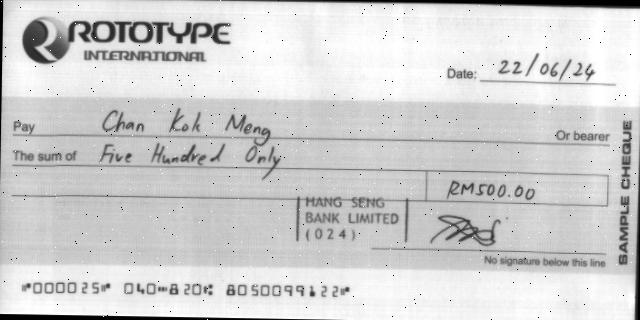 ROTOTYPE
INTERNATIONAL
Date: 22/06/24
Pay Chan Kok Meng Or bearer
The sum of Five Hundred Only
RM500.00
HANG SENG
BANK LIMITED
(024)
No signature below this line
SAMPLE CHEQUE
⑈000025⑈ 040⑉820⑆ 8050099122⑈